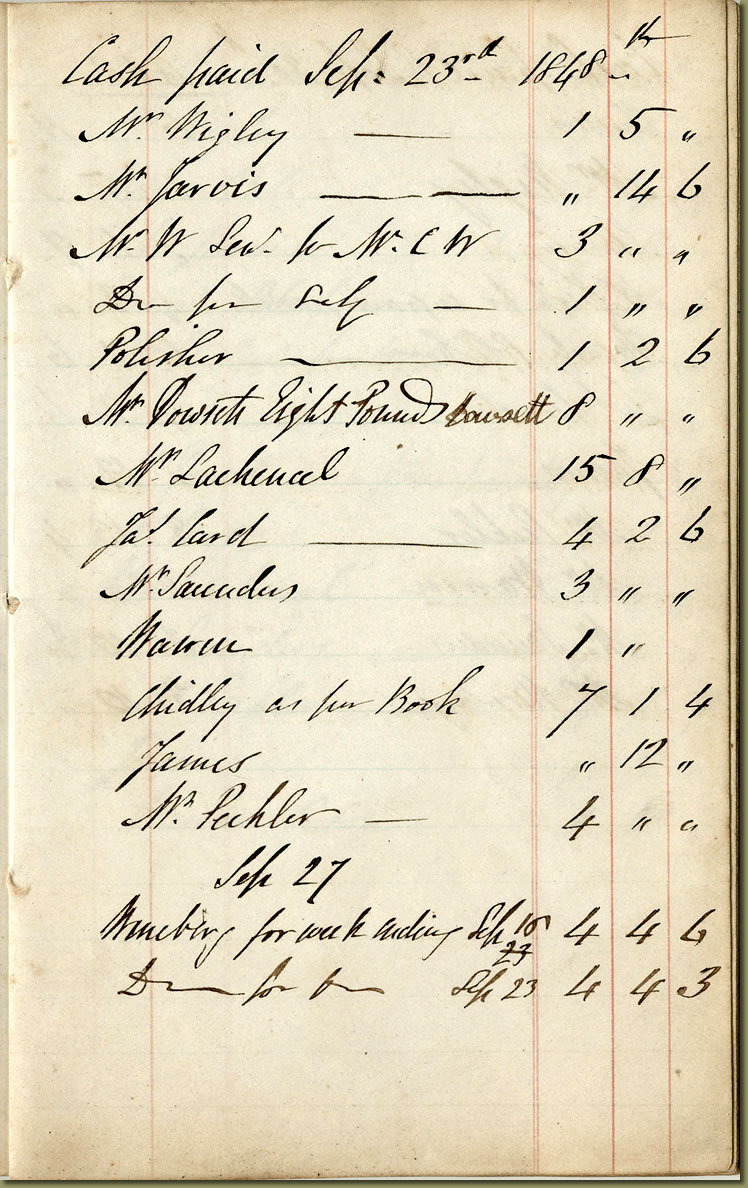 Cash paid Sep: 23rd 1848 th
Mr Wigley — 1 5 "
Mr. Jarvis — — " 14 6
Mr. W Sen. for Mr. C W 3 " "
Do for Self — 1 " "
Polisher — 1 2 6
Mr. Dowsett Eight Pounds Dowsett 8 " "
Mr. Lachenal 15 8 "
Jas. Card — 4 2 6
Mr. Saunders 3 " "
Warren 1 "
Chidley as per Book 7 1 4
James " 12 "
Mr. Pechler — 4 " "
Sep 27
for week ending Sep 16 4 4 6
23
Do for Do Sep 23 4 4 3